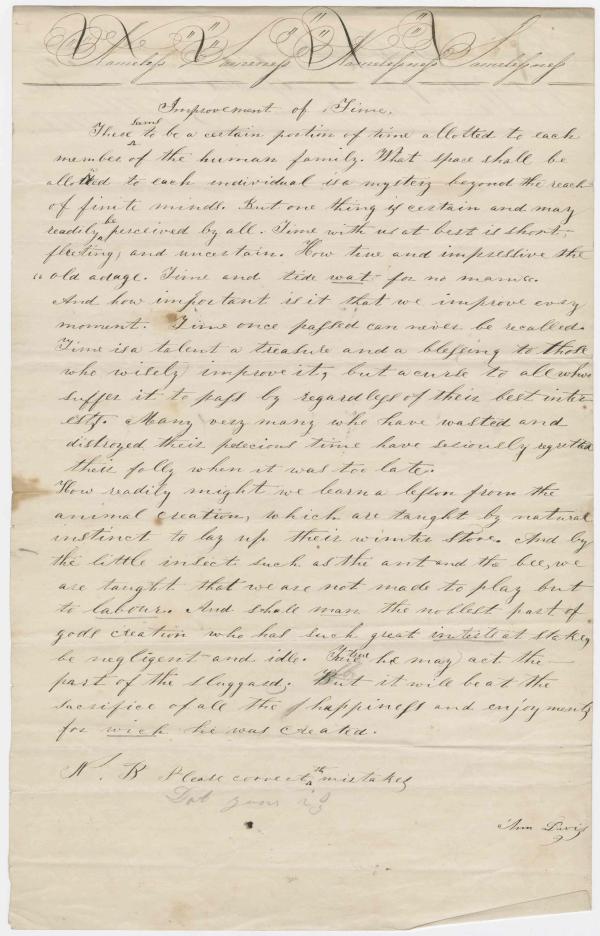 Nameless Sameness Namelessness Samelessness
Improvement of Time.
There seems to be a certain portion of time allotted to each
member of the human family. What space shall be
allotted to each individual is a mystery beyond the reach
of finite minds. But one thing is certain and may
readily be perceived by all. Time with us at best is short,
fleeting, and uncertain. How true and impressive the
"old adage. Time and tide wat for no man."
And how important is it that we improve every
moment. Time once passed can never be recalled.
Time is a talent a treasure and a blessing to those
who wisely improve it, but a curse to all who
suffer it to pass by regardless of their best inter
ests. Many very many who have wasted and
distroyed their precious time have seriously regretted
their folly when it was too late.
How readily might we learn a lesson from the
animal creation, which are taught by natural
instinct to lay up their winter store. And by
the little insect such as the ant and the bee, we
are taught that we are not made to play but
to labour. And schall man the noblest part of
gods creation who has such great intrests at stake,
be negligent and idle. True he may act the
part of the sluggard; But it will be at the
sacrifice of all the happiness and enjoyments
for wich he was created.
N. B Please correct th mistakes
Ann Davis